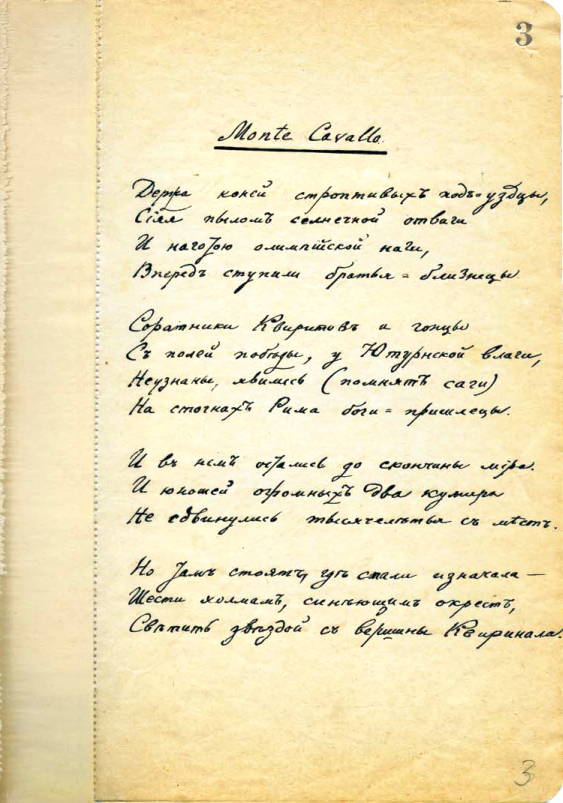 3
Monte Cavallo.
Держа коней строптивыхъ подъ-уздцы,
Сіяя пыломъ солнечной отваги
И наготою олимпійской наги,
Впередъ ступили братья-близнецы
Соратники Квиритовъ и гонцы
Съ полей побѣды, у Ютурнской влаги,
Неузнаны, явились (помнятъ саги)
На стогнахъ Рима боги-пришлецы.
И въ немъ остались до скончины міра.
И юношей огромныхъ два кумира
Не сдвинулись тысячелѣтья съ мѣстъ.
Но тамъ стоятъ, гдѣ стали изначала —
Шести холмамъ, синѣющимъ окрестъ,
Свѣтить звѣздой съ вершины Квиринала.
3